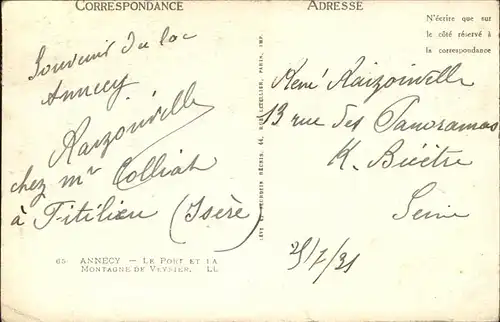 CORRESPONDANCE
Souvenir du lac
Annecy
Raizonville
chez mr Colliat
à Fitilieu (Isère)
65 ANNECY – LE PORT ET LA
MONTAGNE DE VEYRIER. LL
ADRESSE
N'écrire que sur
le côté réservé à
la correspondance
René Raizonville
13 rue des Panoramas
K. Bicêtre
Seine